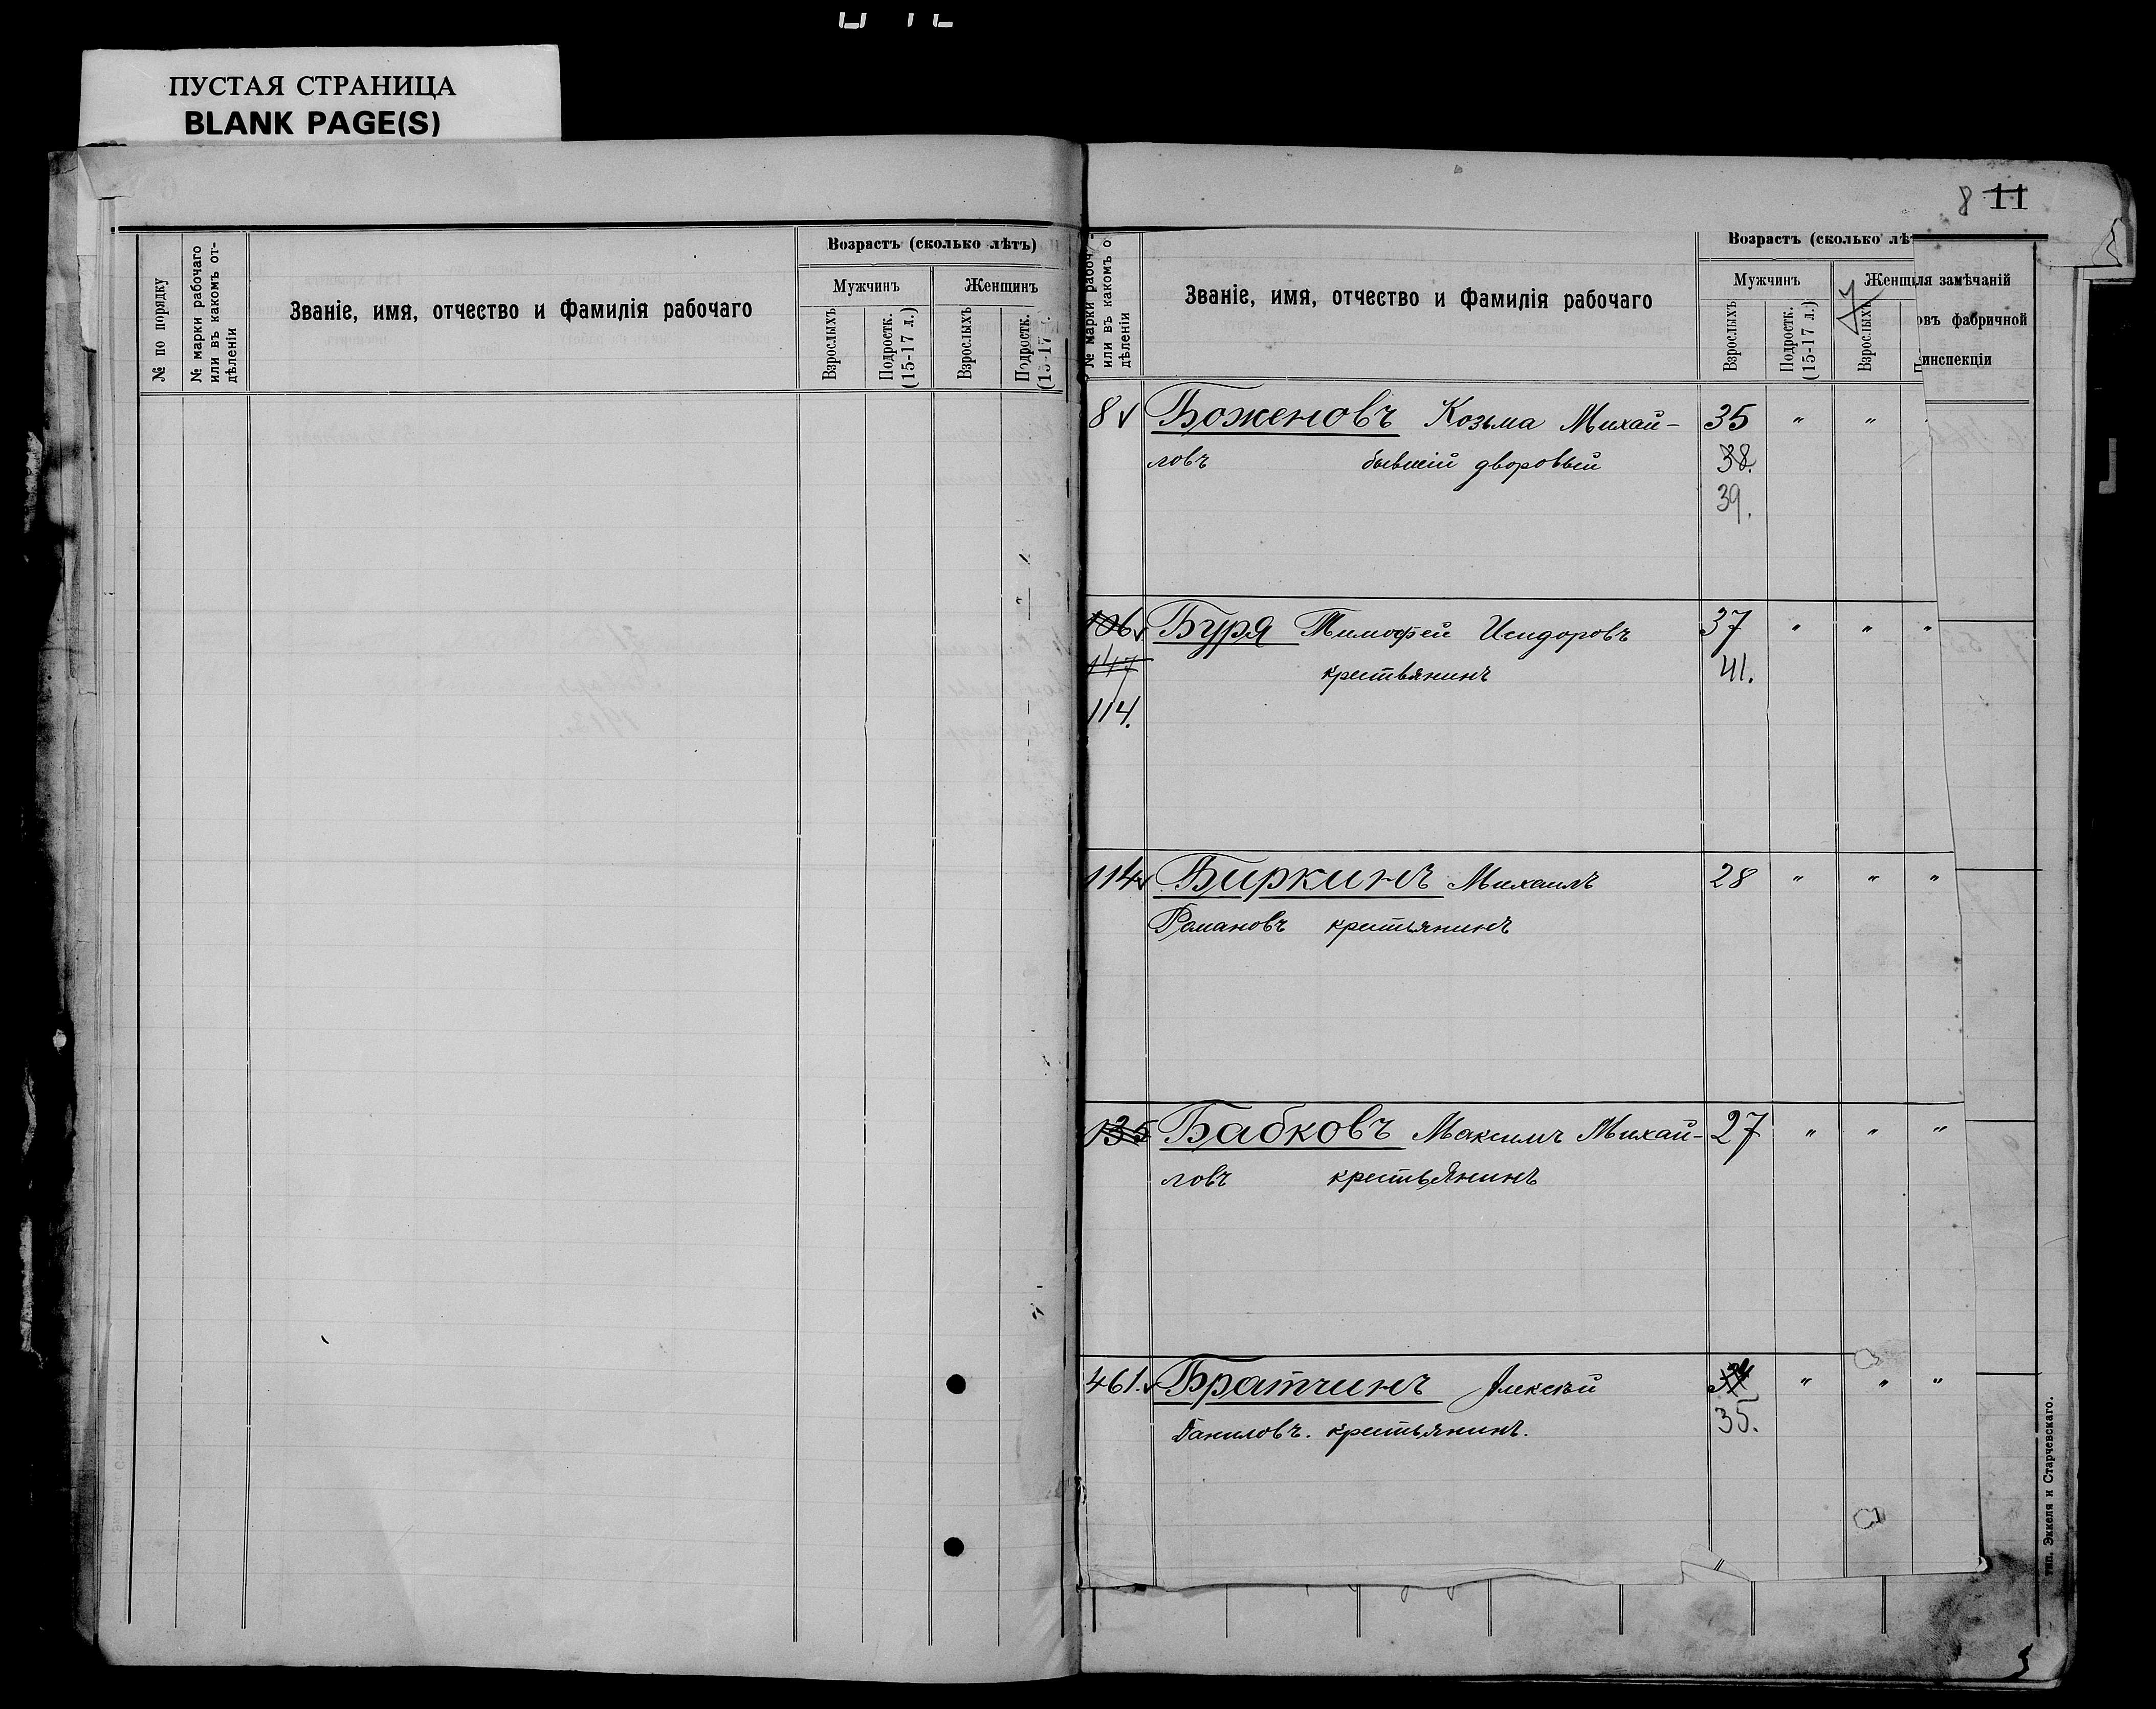 ПУСТАЯ СТРАНИЦА
BLANK PAGE(S)
№ по порядку
№ марки рабочаго или въ какомъ отдѣленіи
Званіе, имя, отчество и фамилія рабочаго
Возрастъ (сколько лѣтъ)
Мужчинъ
Женщинъ
Взрослыхъ
Подростк. (15-17 л.)
Взрослыхъ
Подростк.
8 11
№ марки рабоч
или въ какомъ о
дѣленіи
Званіе, имя, отчество и фамилія рабочаго
Возрастъ (сколько лѣ
Мужчинъ
Женщ
ля замѣчаній
Взрослыхъ
Подростк.
(15-17 л.)
Взрослыхъ
овъ фабричной
инспекціи
8 Боженовъ Козьма Михай- 35 " "
ловъ бывшій дворовый 38.
39.
106 Буря Тимофей Исидоровъ 37 " " "
147 крестьянинъ 41.
114.
114 Биркинъ Михаилъ 28 " " "
Романовъ крестьянинъ
135 Бабковъ Максимъ Михай- 27 " " "
ловъ крестьянинъ
461. Братчинъ Алексѣй 34 " " "
Даниловъ. крестьянинъ. 35.
тип. Эккеля и Старчевскаго.